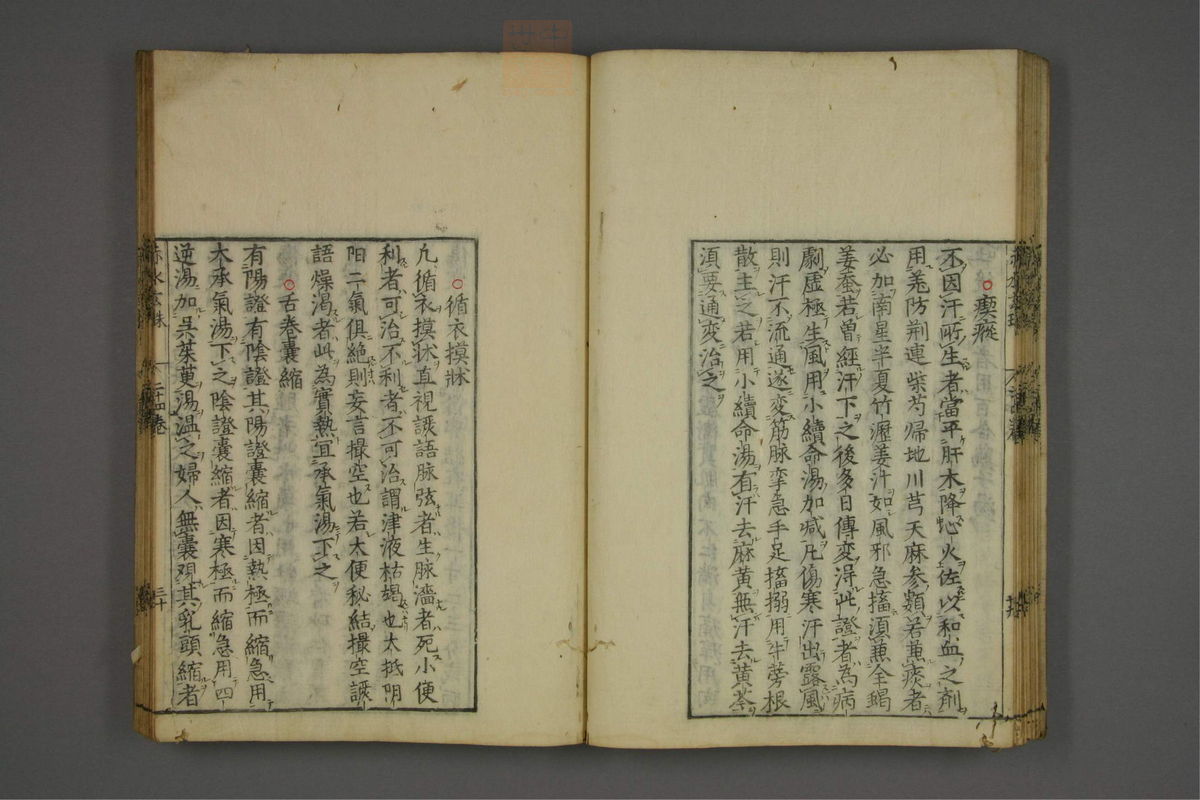 瘈瘲
不因汗所生者當平肝木降心火佐以和血之剤
用羗防荆連柴芍帰地川芎天麻参類若兼痰者
必加南星半夏竹瀝姜汁如風邪急搐須兼全蝎
姜蚕若曽經汗下之後多日傳変淂此證者為病
劇虚極生風用小續命湯加减凡傷寒汗出露風
則汗不流通遂変筋脉挛急手足搐搦用牛蒡根
散主之若用小續命湯有汗去麻黄無汗去黄芩
須要通変治之
循衣摸牀
凢循衣摸牀直視譫語脉弦者生脉濇者死小便
利者可治不利者不可治謂津液枯竭也太抵阴
阳二氣俱絶則妄言撮空也若大便秘結撮空譫
語燥渇者此為實熱宜承氣湯下之
舌巻囊縮
有陽證有陰證其陽證囊縮者因熱極而縮急用
大承氣湯下之陰證囊縮者因寒極而縮急用四
逆湯加呉茱萸湯温之婦人無囊观其乳頭縮者
赤水玄珠 二十四巻 三十